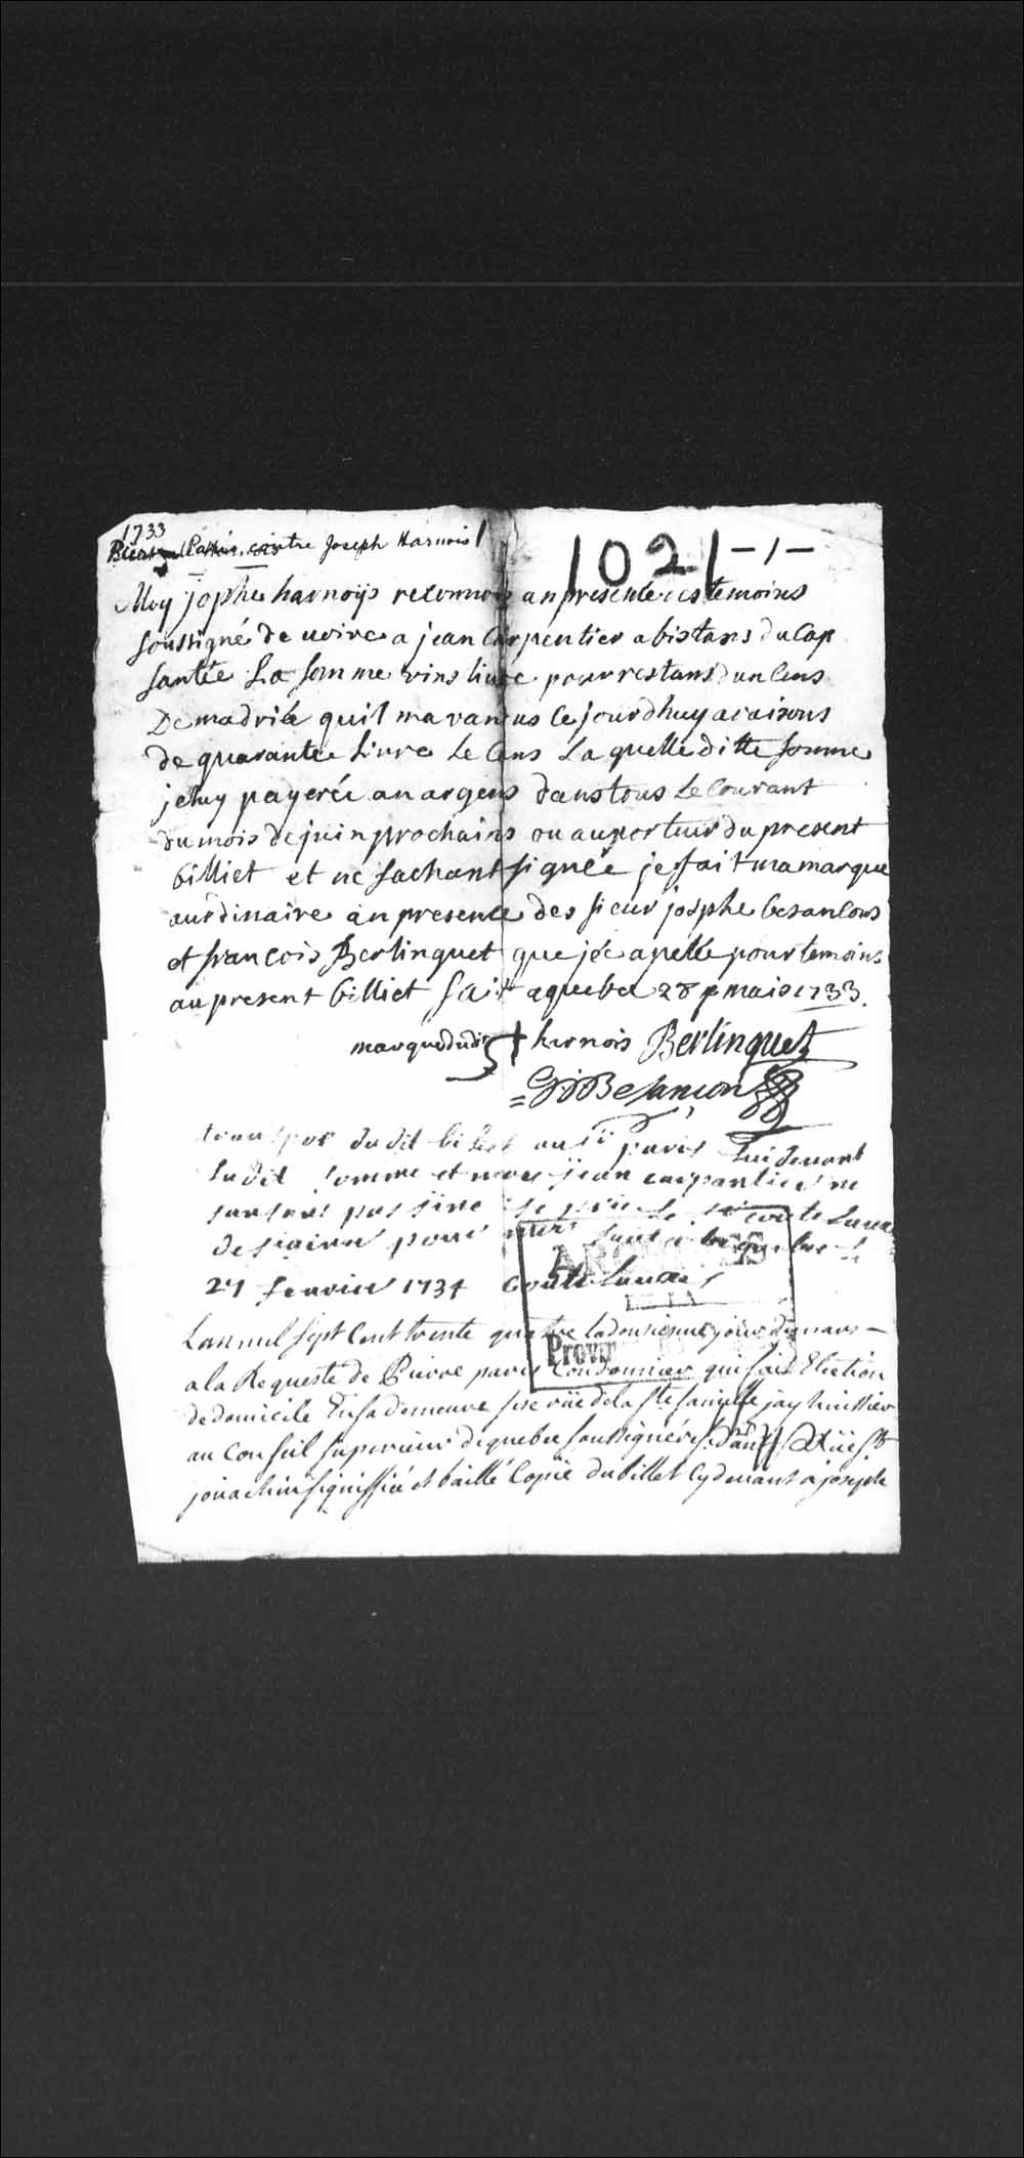 1733
Paris contre Joseph Harnois
1021 -1-
Moy josphe harnoijs reconnois an presence ces temoins
soussigné de uoire a jean Carpentier abistans du Cap
santée La somme vins livre pour restans dun Cens
De madriée quil ma vandus ce jourdhuy a raisons
de quarantee Livre Le Cens Laquelle ditte somme
je luy payerée an argens dans tous Le Courant
du mois de juin prochains ou au porteur du present
billiet et ne sachant signée je fait ma marque
aurdinaire an presence des sieur josphe besancons
et francois Berlinquet que jée apellé pour temoins
au present billiet fait a quebec 28e mais 1733.
marque dudit + hernois Berlinquet
Besançon
transpor dudit billet au sr paris lui devant
ludit somme et moy jean carpantier ne
sine le sr coutelance
de siginer pour moi fait a quebec le
27 fevrier 1734 Coutelance
Lan mil sept Cent trente quatre la dousieme jour de mars
a la Requeste de Pierre paris Cordonnier qui fait Election
de domicile En sa demeure size rüe de la ste famille jay huissier
au Conseil superieur de quebec soussigné résidant Rüe St
jouachin signiffié et baillé Copie du billet Cy devant a joseph
ARCHIVES
DE LA
Provin